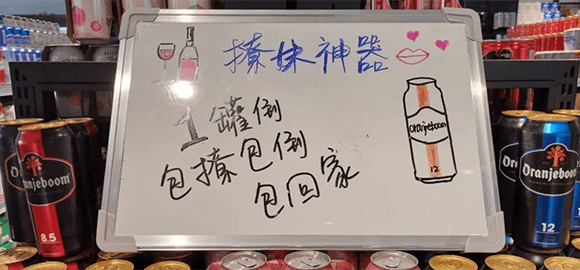 撩妹神器
1罐倒
包撩包倒
包回家
Oranjeboom
12
Oranjeboom
8.5
Oranjeboom
12